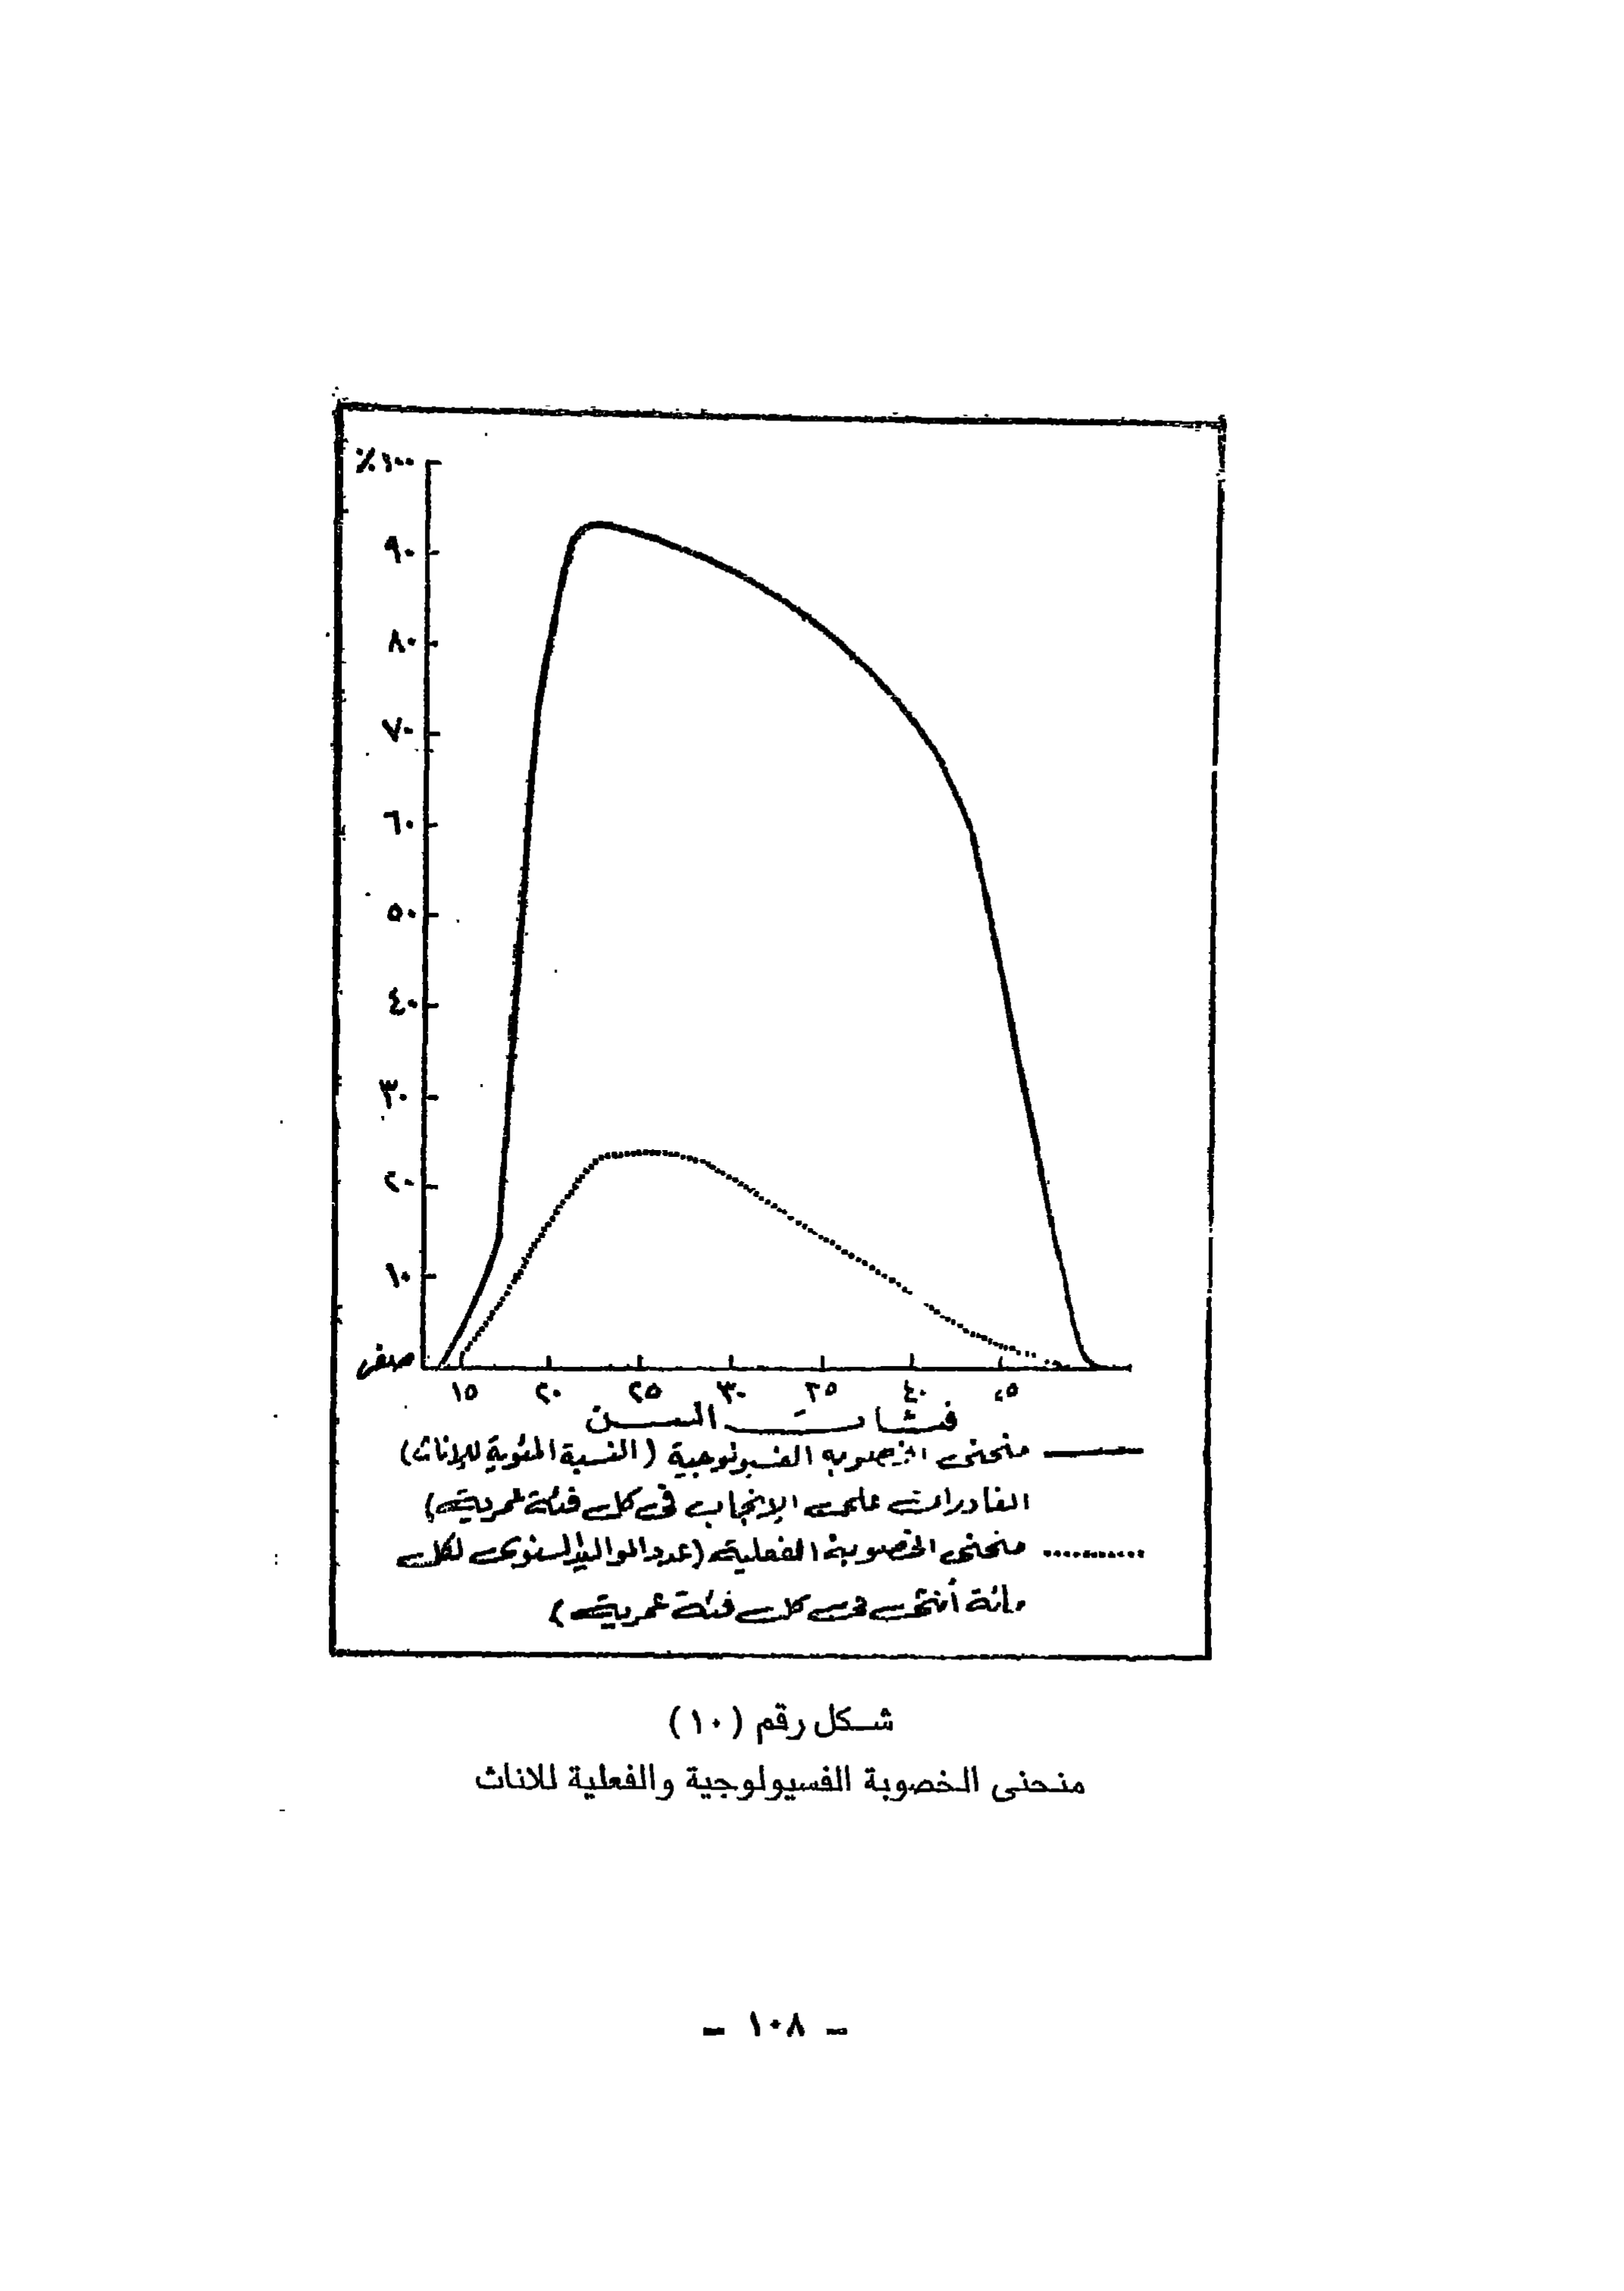 ٪١٠٠
٩٠
٨٠
٧٠
٦٠
٥٠
٤٠
٣٠
٢٠
١٠
صفر
١٥ ٢٠ ٢٥ ٣٠ ٣٥ ٤٠ ٤٥
فئات السن
منحنى الخصوبه الفسيولوجية (النسبة المئوية للإناث)
القادرات على الإنجاب فى كل فئة عمرية)
منحنى الخصوبة الفعلية (عدد المواليد السنوى لكل
مائة أنثى فى كل فئة عمرية)
شكل رقم (١٠)
منحنى الخصوبة الفسيولوجية والفعلية للاناث
ـ ١٠٨ ـ